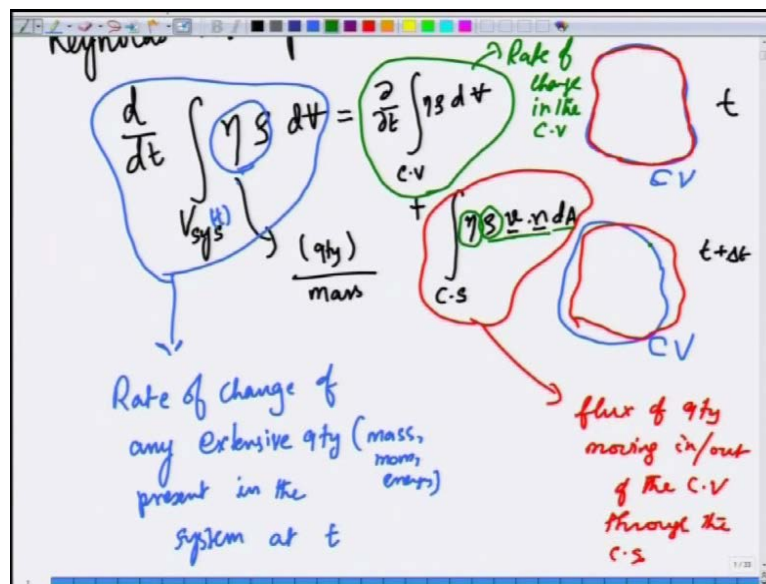 Reynolds
d/dt ∫ η ρ dV = ∂/∂t ∫ ηρ dV
Vsys(t)
C.V
→ Rate of
change
in the
C.V
t
CV
+
∫ η ρ v . n dA
C.S
(qty)
mass
t+Δt
CV
Rate of change of
any extensive qty (mass,
mom,
energy)
present in the
system at t
flux of qty
moving in/out
of the C.V
through the
C.S
1/33